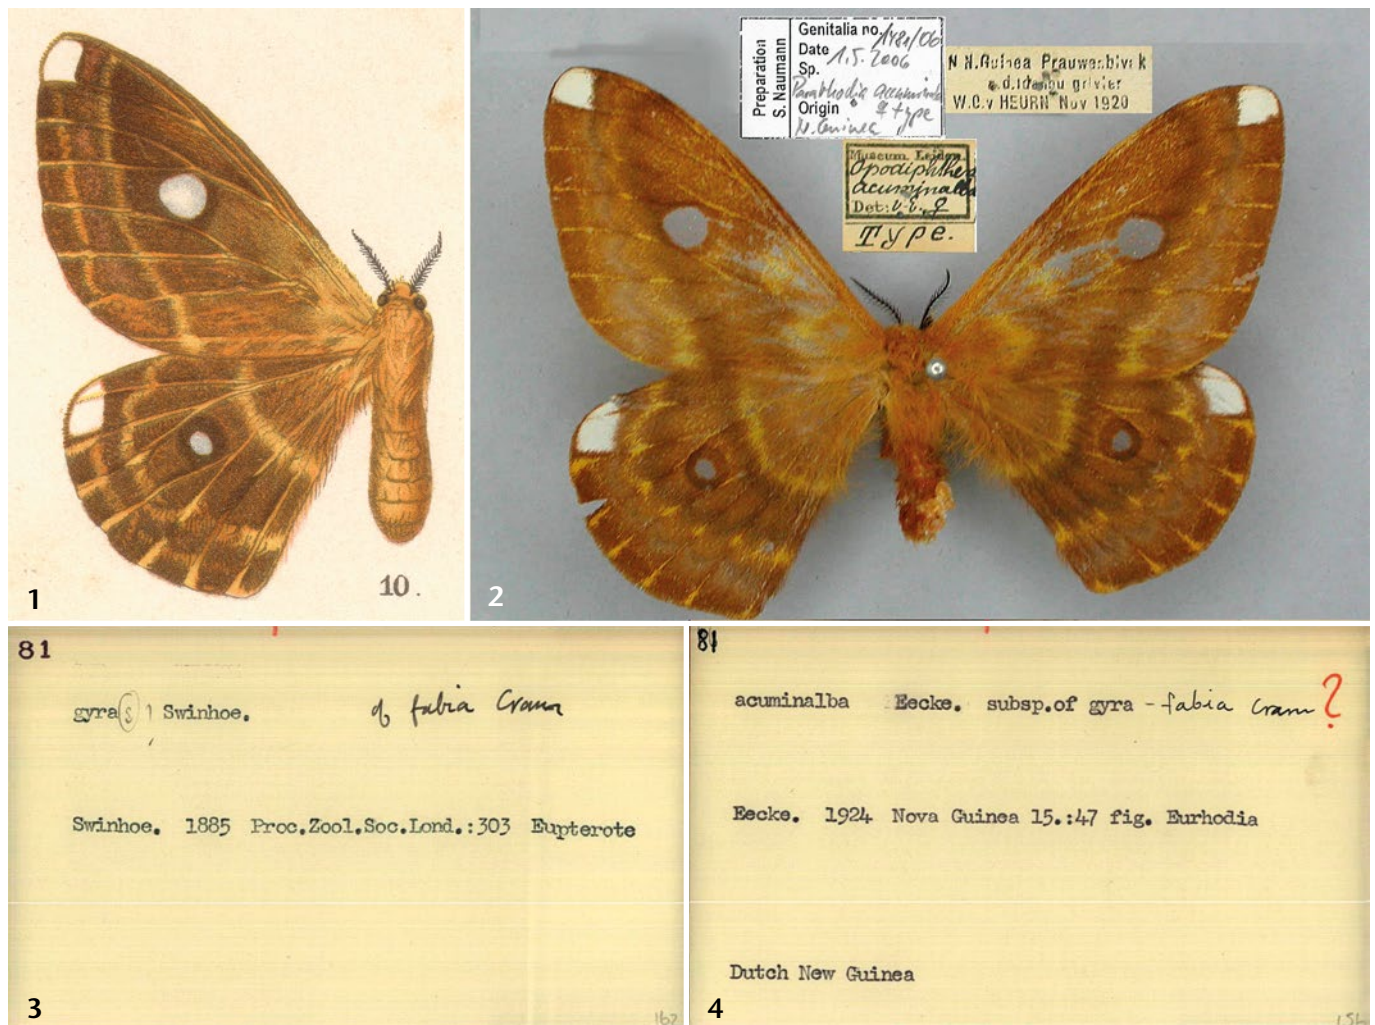 1
10.
2
Preparation
S. Naumann
Genitalia no. 1481/06
Date 1.5.2006
Sp.
Origin ♀ type
N. Guinea
N N.Guinea Prauwenbivak
W.C.v HEURN Nov 1920
Museum Leiden
Opodiphthera
acuminalba
Det: v.E. ♀
Type.
81
gyra(s) Swinhoe. of fabia Cram
Swinhoe. 1885 Proc.Zool.Soc.Lond.:303 Eupterote
3
162
81
acuminalba Eecke. subsp.of gyra - fabia Cram ?
Eecke. 1924 Nova Guinea 15.:47 fig. Eurhodia
Dutch New Guinea
4